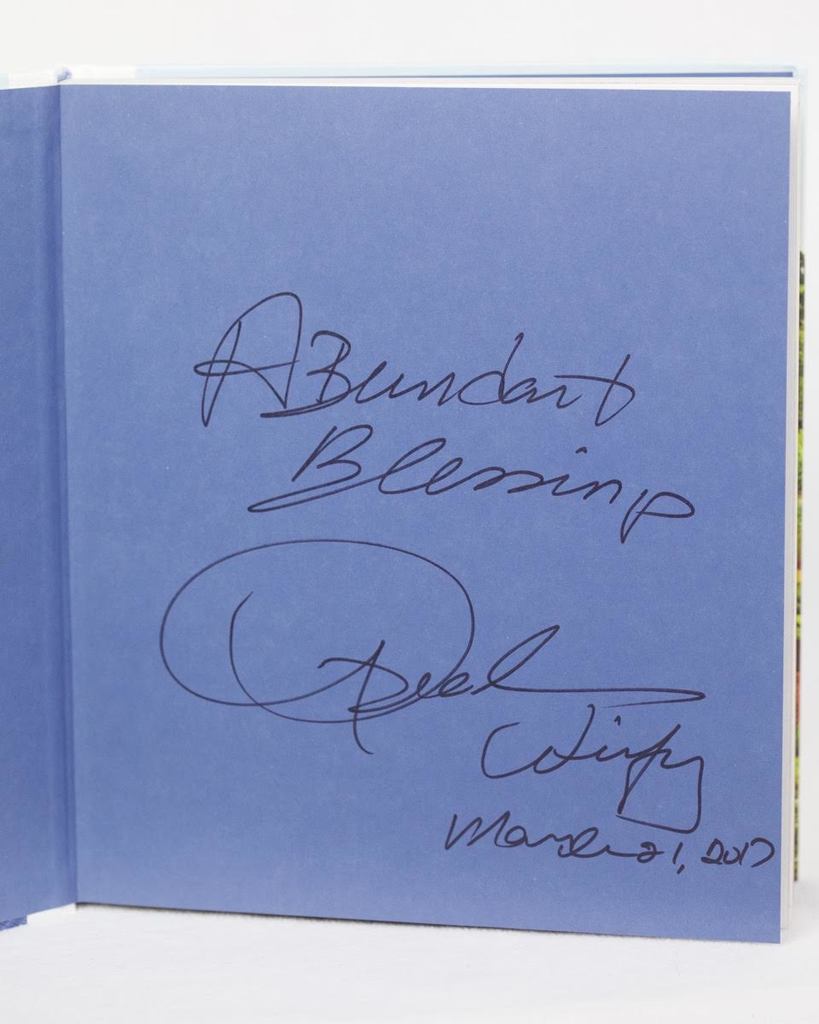 ABundant
Blessings
Oprah
Winfrey
March 21, 2017